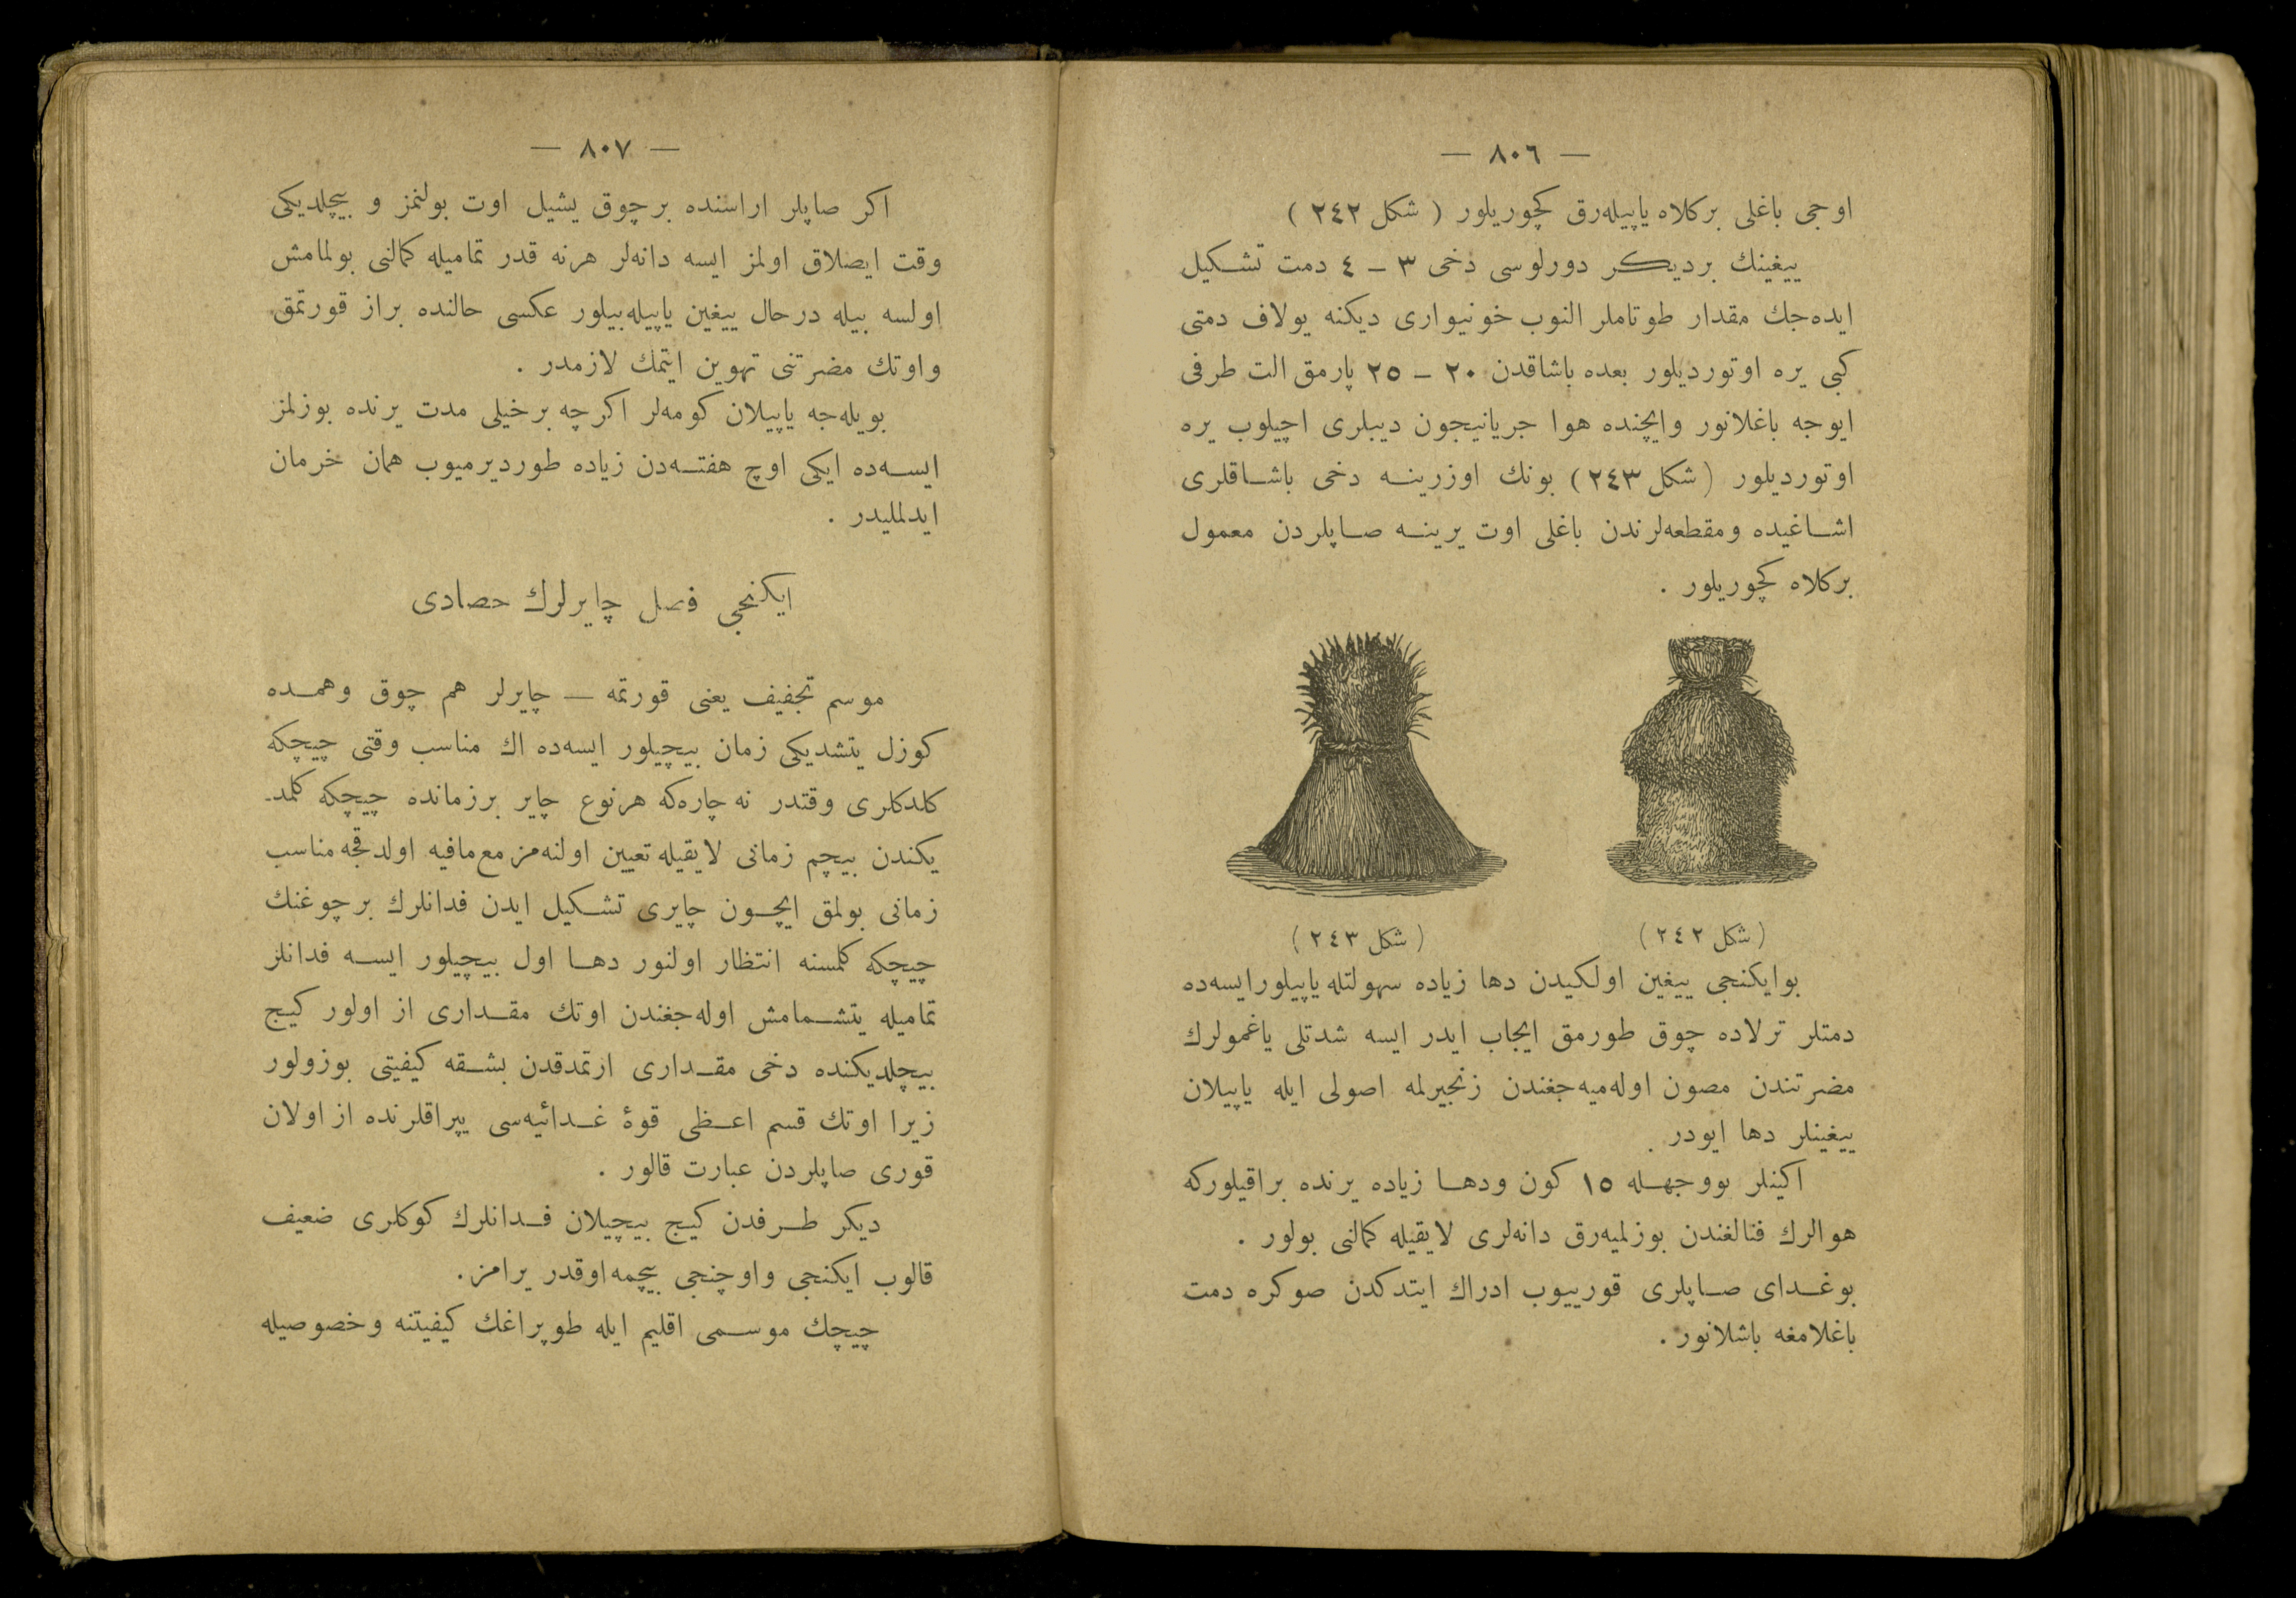 — ٨٠٦ —
اوجی باغلی بركلاه یاپیله‌رق كچوریلور ( شكل ٢٤٢ )
ییغینك بردیكر دورلوسی دخی ٣ – ٤ دمت تشكیل
ایده‌جك مقدار طوتاملر النوب خونیواری دیكنه یولاف دمتی
كبی یره اوتوردیلور بعده باشاقدن ٢٠ – ٢٥ پارمق الت طرفی
ایوجه باغلانور وایچنده هوا جریانیچون دیبلری اچیلوب یره
اوتوردیلور (شكل ٢٤٣) بونك اوزرینه دخی باشاقلری
اشاغیده ومقطعه‌لرندن باغلی اوت یرینه صاپلردن معمول
بركلاه كچوریلور .
( شكل ٢٤٢ )
( شكل ٢٤٣ )
بوایكنجی ییغین اولكیدن دها زیاده سهولتله یاپیلورایسه‌ده
دمتلر ترلاده چوق طورمق ایجاب ایدر ایسه شدتلی یاغمورلرك
مضرتندن مصون اوله‌میه‌جغندن زنجیرلمه اصولی ایله یاپیلان
ییغینلر دها ایودر .
اكینلر بووجهله ١٥ كون ودها زیاده یرنده براقیلوركه
هوالرك فنالغندن بوزلمیه‌رق دانه‌لری لایقیله كمالنی بولور .
بوغدای صاپلری قورییوب ادراك ایتدكدن صوكره دمت
باغلامغه باشلانور .
— ٨٠٧ —
اكر صاپلر اراسنده برچوق یشیل اوت بولنمز و بیچلدیكی
وقت ایصلاق اولمز ایسه دانه‌لر هرنه قدر تمامیله كمالنی بولمامش
اولسه بیله درحال ییغین یاپیله‌بیلور عكسی حالنده براز قورتمق
واوتك مضرتنی تهوین ایتمك لازمدر .
بویله‌جه یاپیلان كومه‌لر اكرچه برخیلی مدت یرنده بوزلمز
ایسه‌ده ایكی اوچ هفته‌دن زیاده طوردیرمیوب همان خرمان
ایدلملیدر .
ایكنجی فصل چایرلرك حصادی
موسم تجفیف یعنی قورتمه — چایرلر هم چوق وهمده
كوزل یتشدیكی زمان بیچیلور ایسه‌ده اك مناسب وقتی چیچكه
كلدكلری وقتدر نه چاره‌كه هرنوع چایر برزمانده چیچكه كلمد-
یكندن بیچم زمانی لایقیله تعیین اولنه‌مز مع‌مافیه اولدقجه مناسب
زمانی بولمق ایچون چایری تشكیل ایدن فدانلرك برچوغنك
چیچكه كلمسنه انتظار اولنور دها اول بیچیلور ایسه فدانلر
تمامیله یتشمامش اوله‌جغندن اوتك مقداری از اولور كیج
بیچلدیكنده دخی مقداری ارتمدقدن بشقه كیفیتی بوزولور
زیرا اوتك قسم اعظمی قوهٔ غدائیه‌سی یپراقلرنده از اولان
قوری صاپلردن عبارت قالور .
دیكر طرفدن كیج بیچیلان فدانلرك كوكلری ضعیف
قالوب ایكنجی واوچنجی بیچمه اوقدر یرامز .
چیچك موسمی اقلیم ایله طوپراغك كیفیتنه وخصوصیله